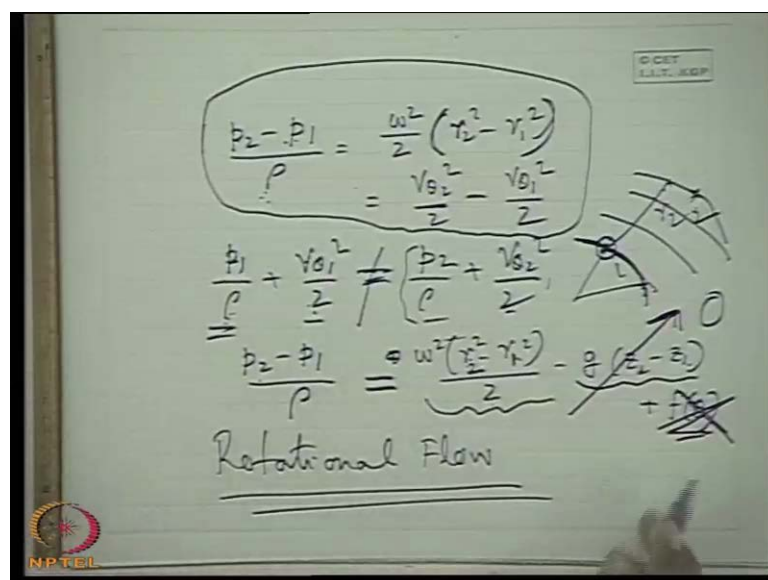 © CET
I.I.T. KGP
p₂ - p₁ / ρ = ω²/2 (r₂² - r₁²)
= Vθ₂²/2 - Vθ₁²/2
p₁/ρ + Vθ₁²/2 ≠ p₂/ρ + Vθ₂²/2
r₂
p₂ - p₁ / ρ = ω²(r₂² - r₁²)/2 - g(z₂ - z₁) 0
Rotational Flow
NPTEL